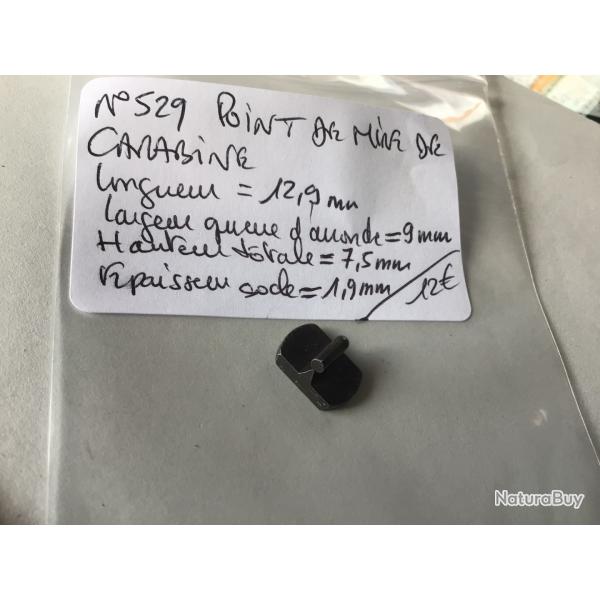 N° 529 POINT DE MIRE DE
CARABINE
longueur = 12,9 mm
largeur queue d'aronde = 9 mm
Hauteur totale = 7,5 mm
epaisseur socle = 1,9 mm / 12€
NaturaBuy